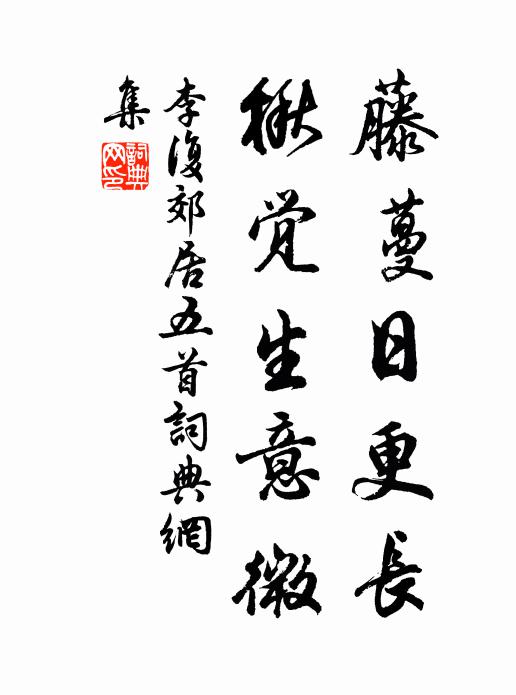 藤蔓日更長
楸觉生意微
李復郊居五首詞典網
集
詞典网印